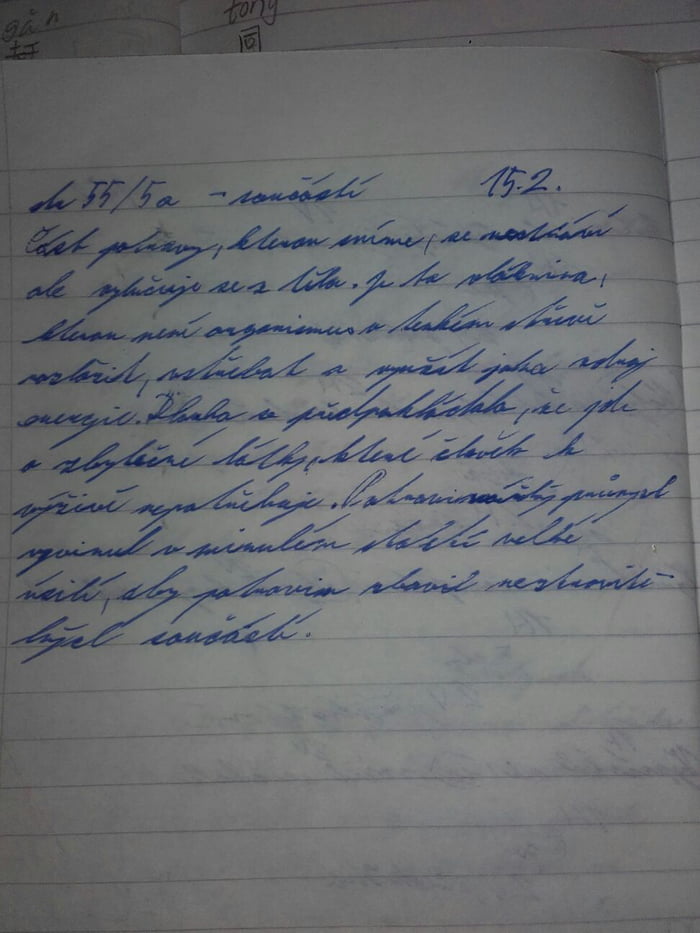 tony
回
str 55/5a – součásti 15.2.
Část potravy, kterou sníme, se nestráví
ale vylučuje se z těla. Je to vláknina,
kterou není organismus v tenkém střevě
rozložit, vstřebat a využít jako zdroj
energie. Dlouho se předpokládalo, že jde
o zbytečné látky, které člověk k
výživě nepotřebuje. Potravinářský průmysl
vyvinul v minulém století velké
úsilí, aby potravin zbavil nestravite-
lných součástí.